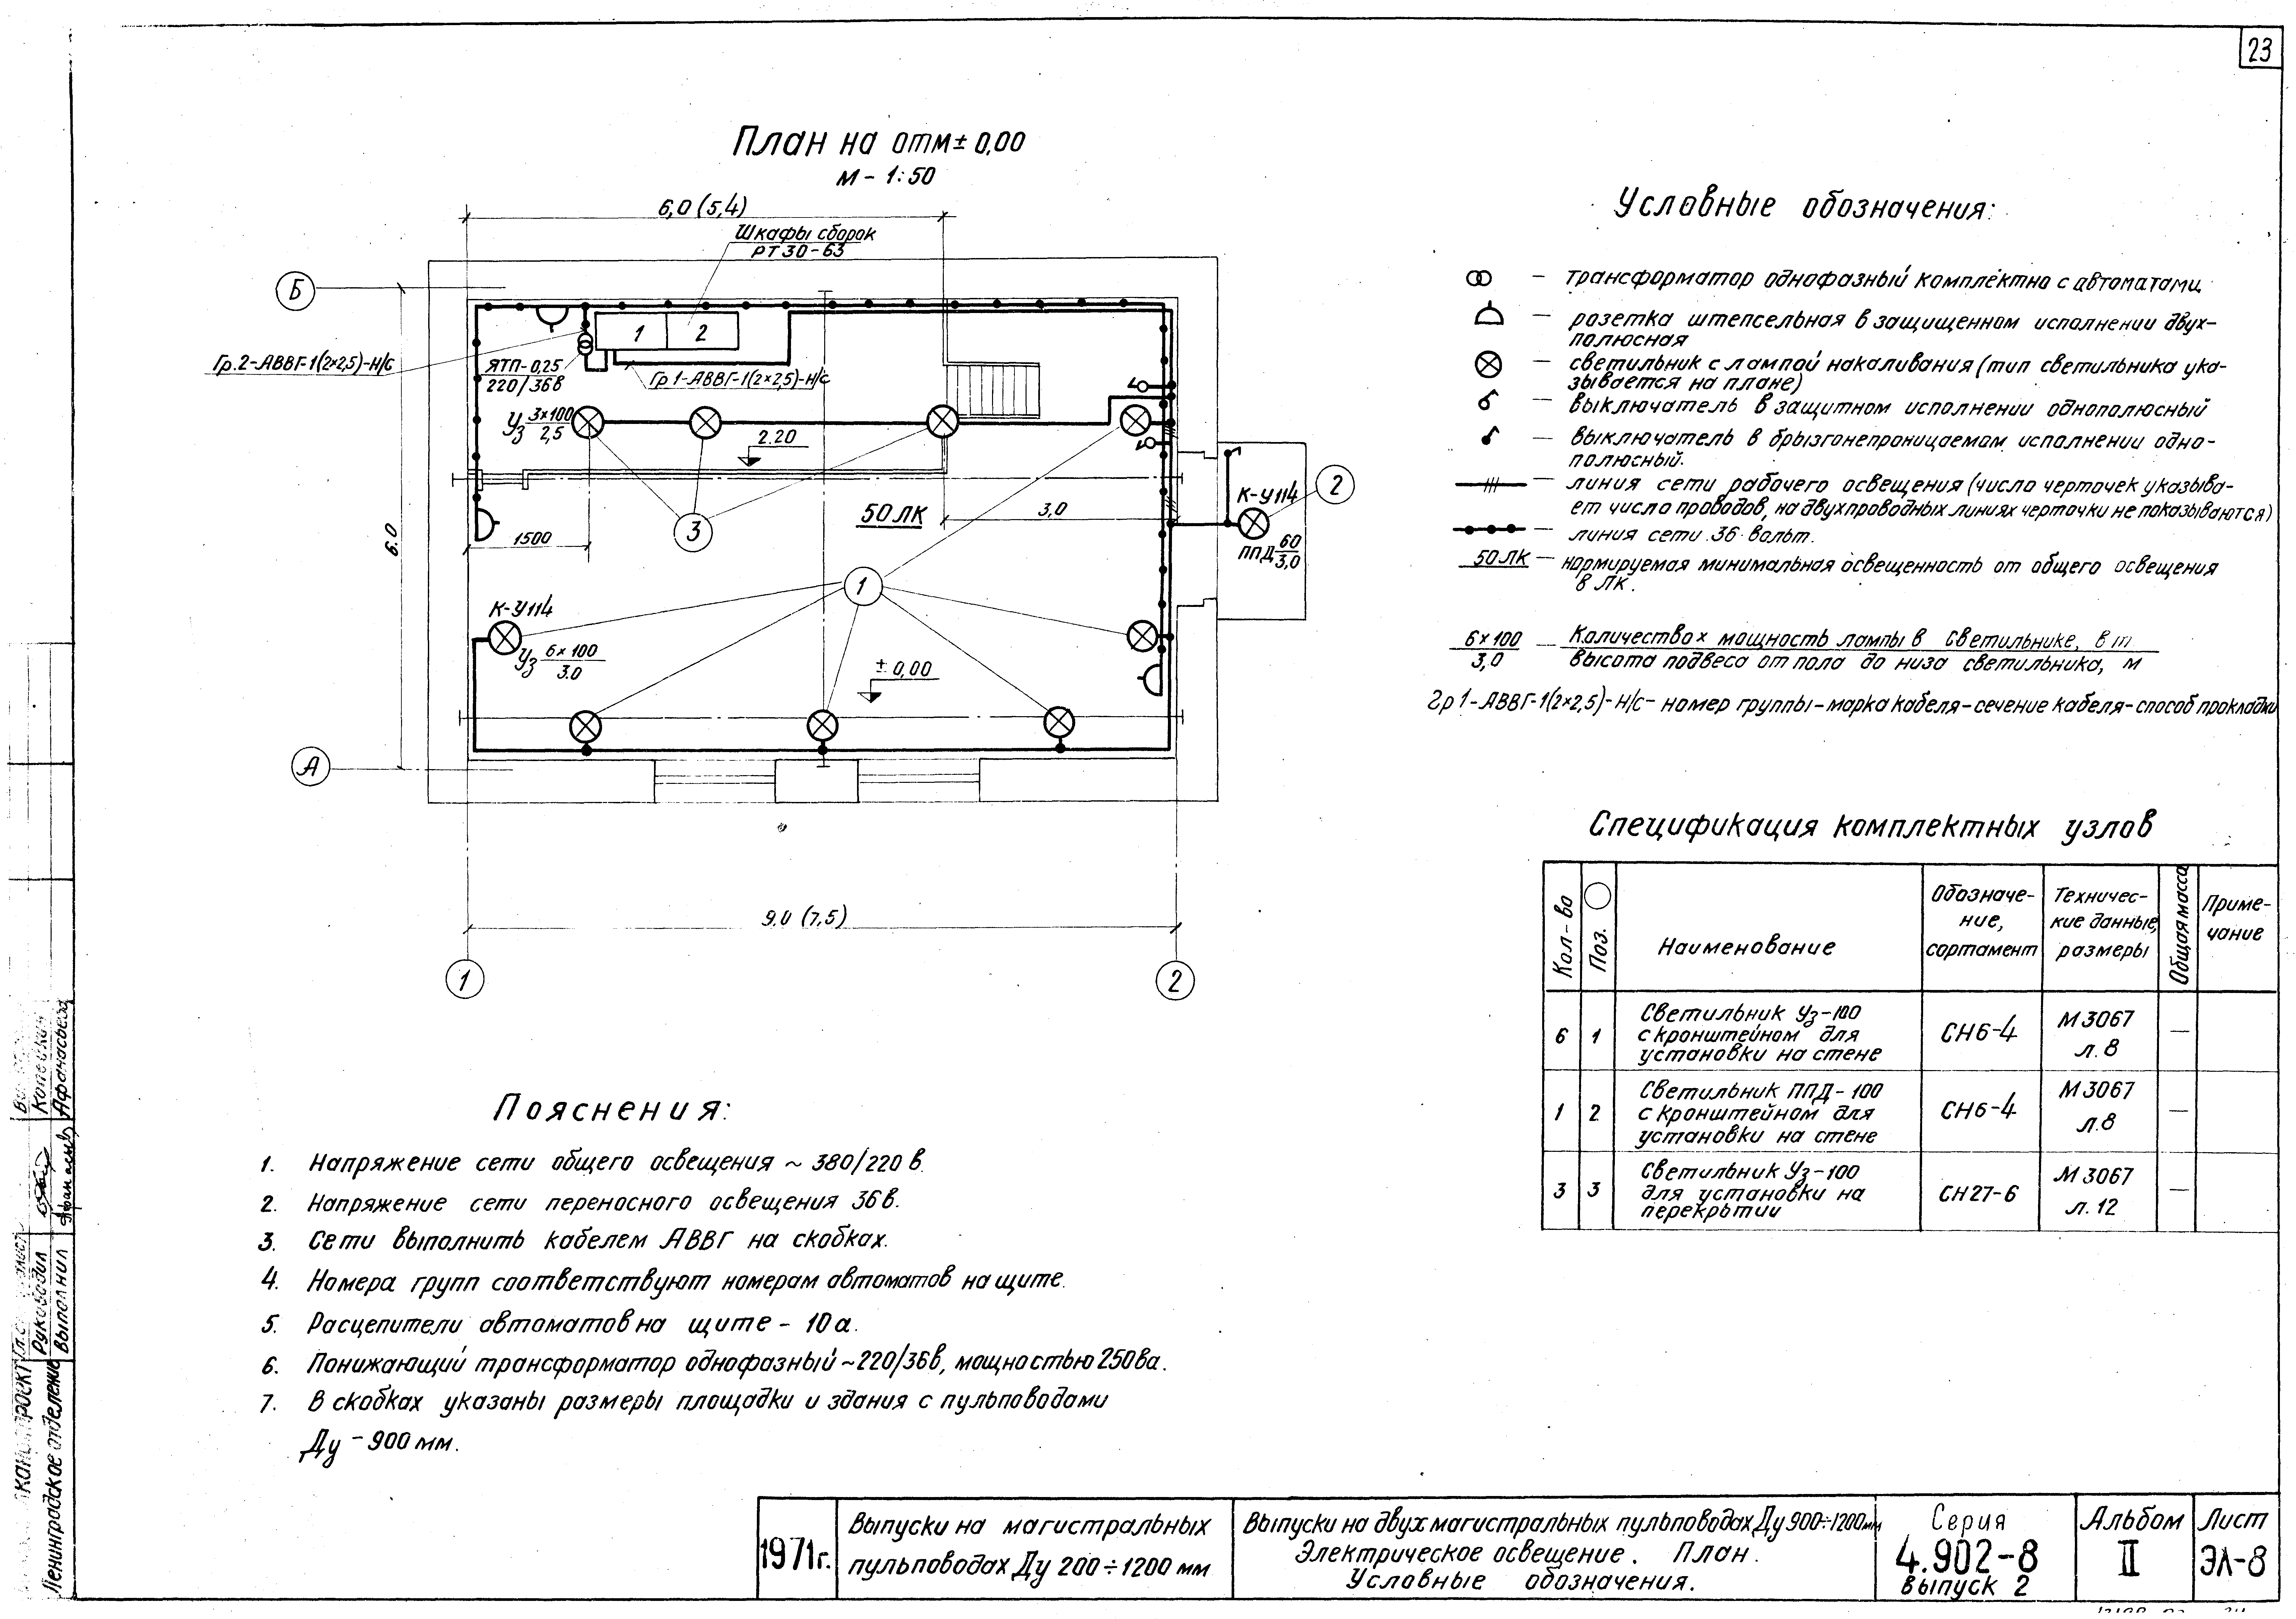 23
План на отм ± 0,00
М - 1:50
6,0 (5,4)
Шкафы сборок
РТ 30-63
Б
1 2
Гр.2-АВВГ-1(2×2,5)-Н/С
ЯТП-0,25
220/36в
Гр.1-АВВГ-1(2×2,5)-Н/С
У3 3×100
2,5
2.20
6.0
1500
3
50 ЛК
3,0
К-У114
2
ППД 60
3,0
1
К-У114
У3 6×100
3.0
± 0,00
А
9,0 (7,5)
1
2
Условные обозначения:
— трансформатор однофазный комплектно с автоматами
— розетка штепсельная в защищенном исполнении двух-
полюсная
— светильник с лампой накаливания (тип светильника ука-
зывается на плане)
— выключатель в защитном исполнении однополюсный
— выключатель в брызгонепроницаемом исполнении одно-
полюсный.
— линия сети рабочего освещения (число черточек указыва-
ет число проводов, на двухпроводных линиях черточки не показываются)
— линия сети 36 вольт.
50 ЛК — нормируемая минимальная освещенность от общего освещения
в ЛК.
6×100 — Количество х мощность лампы в светильнике, вт
3,0 высота подвеса от пола до низа светильника, м
Гр 1-АВВГ-1(2×2,5)-Н/С- номер группы-марка кабеля-сечение кабеля-способ прокладки
Спецификация комплектных узлов
Кол-во
Поз.
Наименование
Обозначе-
ние,
сортамент
Техничес-
кие данные,
размеры
Общая масса
Приме-
чание
6 1 Светильник У3-100
с кронштейном для
установки на стене
СН6-4
М 3067
л. 8
—
1 2 Светильник ППД-100
с кронштейном для
установки на стене
СН6-4
М 3067
л.8
—
3 3 Светильник У3-100
для установки на
перекрытии
СН27-6
М 3067
л. 12
—
Пояснения:
1. Напряжение сети общего освещения ~ 380/220 в.
2. Напряжение сети переносного освещения 36 в.
3. Сети выполнить кабелем АВВГ на скобках.
4. Номера групп соответствуют номерам автоматов на щите.
5. Расцепители автоматов на щите - 10 а.
6. Понижающий трансформатор однофазный ~220/36в, мощностью 250ва.
7. В скобках указаны размеры площадки и здания с пульповодами
Ду - 900 мм.
1971г.
Выпуски на магистральных
пульповодах Ду 200÷1200 мм
Выпуски на двух магистральных пульповодах Ду 900÷1200мм
Электрическое освещение. План.
Условные обозначения.
Серия
4.902-8
выпуск 2
Альбом
II
Лист
ЭЛ-8
Ленинградское отделение
Руководил
Выполнил
Афанасьева